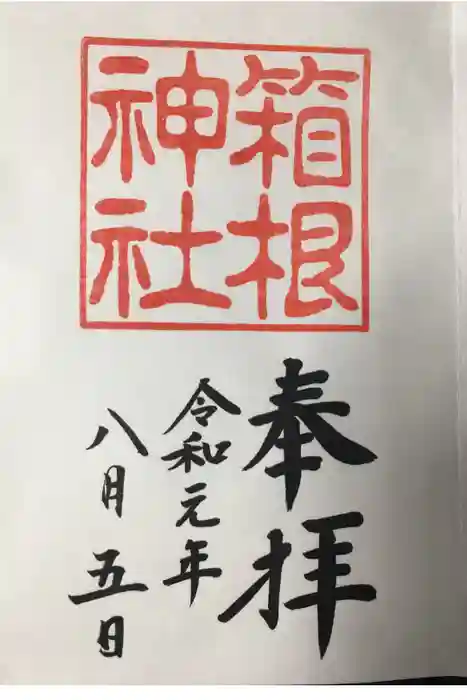 箱根
神社
奉拝
令和元年
八月五日